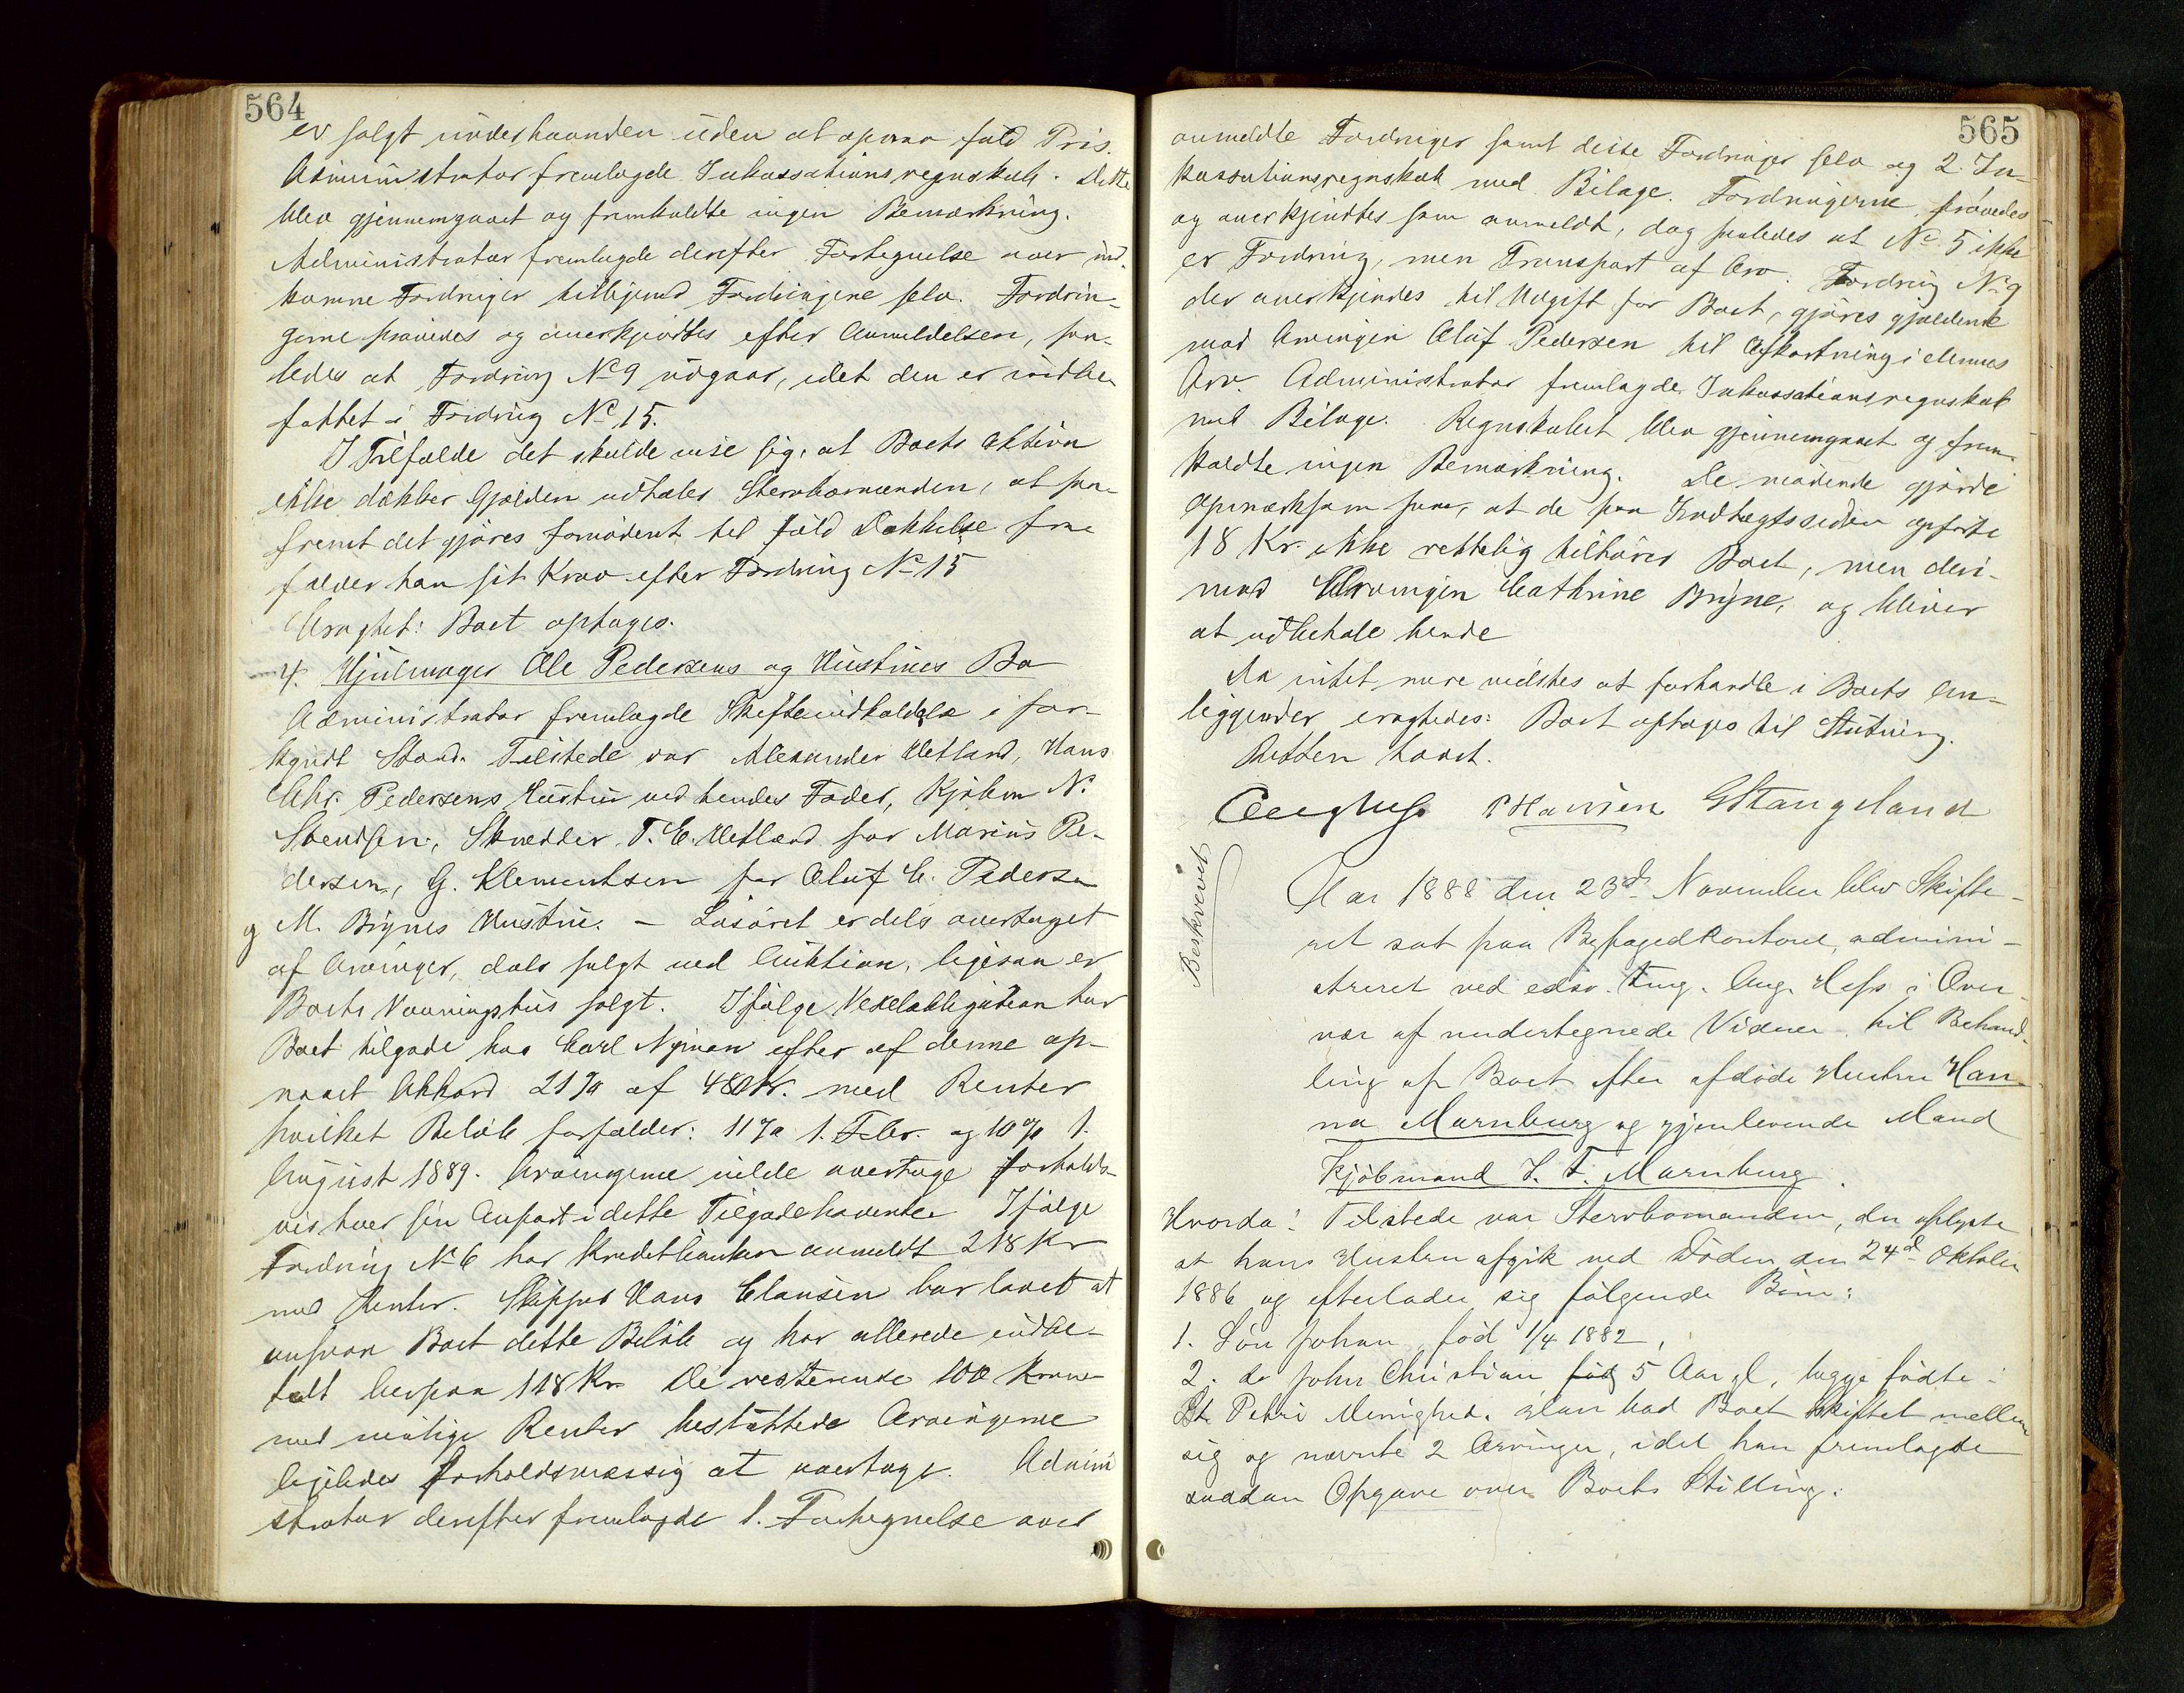 564
er solgt underhaanden uden at opnaa fuld Pris.
Administrator fremlagde Inkassationsregnskab. Dette
blev gjennemgaaet og fremkaldte ingen Bemærkning.
Administrator fremlagde derefter Fortegnelse over ind-
komne Fordringer tilligemed Fordringerne selv. Fordrin-
gerne prøvedes og anerkjendtes efter Anmeldelsen, saa-
ledes at Fordring No 9 udgaar, idet den er indbe-
fattet i Fordring No 15.
I Tilfælde det skulde vise sig, at Boets Aktiva
ikke dækker Gjælden udtaler Stervbomanden, at saa-
fremt det gjøres fornødent til fuld Dækkelse fra-
falder han sit Krav efter Fordring No 15
Eragtet: Boet optages.
4. Hjulmager Ole Pedersens og Hustrues Bo
Administrator fremlagde Skifteindkaldelse i for-
kyndt Stand. Tilstede var Alexander Hetland, Hans
Chr. Pedersens Hustru ved hendes Fader, Kjøbm N.
Svendsen, Skrædder T. E. Hetland for Marius Pe-
dersen, G. Klementsen for Oluf C. Pedersen
g M. Brynes Hustru. — Løsøret er dels overtaget
af Arvinger, dels solgt ved Auktion, ligesaa er
Boets Vaaningshus solgt. Ifølge Vexelobligation har
Boet tilgode hos Carl Nyman efter af denne op-
naaet Akkord 21 % af 480 Kr. med Renter
hvilket Beløb forfalder: 11 % 1. Febr. og 10 % 1.
August 1889. Arvingerne vilde overtage forholds-
vis hver sin Anpart i dette Tilgodehavende Ifølge
Fordring No 6 har Kreditbanken anmeldt 218 Kr
med Renter. Skipper Hans Clausen har lovet at
anspare Boet dette Beløb og har allerede indbe-
talt herpaa 118 Kr De resterende 100 Kroner
med mulige Renter besluttede Arvingerne
ligeledes forholdsmæssig at overtage. Admini
strator derefter fremlagde 1. Fortegnelse over
565
anmeldte Fordringer samt disse Fordringer selv og 2. In-
kassationsregnskab med Bilage. Fordringerne prøvedes
og anerkjendtes som anmeldt, dog saaledes at No 5 ikke
er Fordring, men Transport af Arv. Fordring No 9
der anerkjendes til Udgift for Boet, gjøres gjældende
mod Arvingen Oluf Pedersen til Afkortning i dennes
Arv. Administrator fremlagde Inkassationsregnskab
med Bilage. Regnskabet blev gjennemgaaet og frem-
kaldte ingen Bemærkning. De mødende gjorde
opmærksom paa, at de paa Indtægtssiden opførte
18 Kr. ikke rettelig tilhører Boet, men deri-
mod Arvingen Cathrine Bryne, og bliver
at udbetale hende
Da intet mere vidstes at forhandle i Boets An-
liggender eragtedes: Boet optages til Slutning.
Retten hævet.
Aug Hess P Hansen G Stangeland
Beskrevet
Aar 1888 den 23de November blev Skifte-
ret sat paa Byfogedkontoret, admini-
streret ved edsv. fmg. Aug. Hess i Over-
vær af undertegnede Vidner til Behand-
ling af Boet efter afdøde Hustru Han-
na Marnburg og gjenlevende Mand
Kjøbmand J. F. Marnburg.
Hvorda: Tilstede var Stervbomanden, der oplyste
at hans Hustru afgik ved Døden den 24de Oktober
1886 og efterlader sig følgende Børn:
1. Søn Johan, fød 1/4 1882,
2. do John Christian fød 5 Aar gl, begge fødte i
St. Petri Menighed. Han bad Boet skiftet mellem
sig og nævnte 2 Arvinger, idet han fremlagde
saadan Opgave over Boets Stilling: